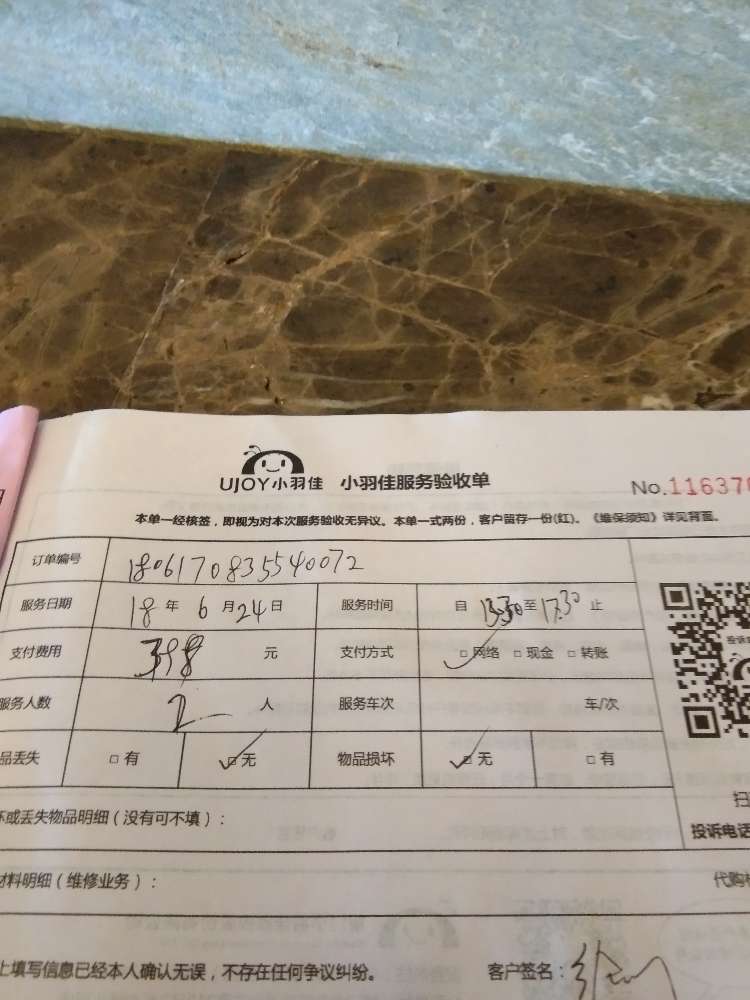 UJOY小羽佳 小羽佳服务验收单
No.11637
本单一经核签，即视为对本次服务验收无异议。本单一式两份，客户留存一份(红)。《维保须知》详见背面。
订单编号 1806170835540072
服务日期 18 年 6 月 24 日 服务时间 自 13:30 至 17:30 止
支付费用 398 元 支付方式 □网络 □现金 □转账
服务人数 2 人 服务车次 车/次
品丢失 □有 □无 物品损坏 □无 □有
坏或丢失物品明细（没有可不填）：
扫
投诉电话
材料明细（维修业务）： 代购
上填写信息已经本人确认无误，不存在任何争议纠纷。 客户签名：